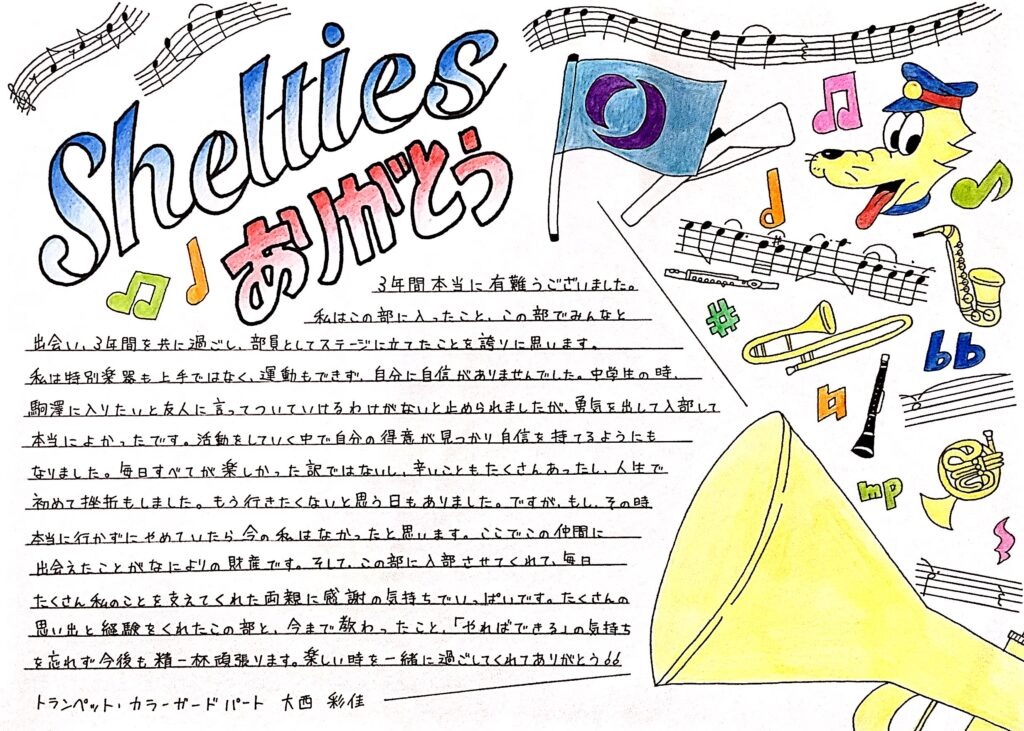 Shelties
ありがとう
3年間本当に有難うございました。
私はこの部に入ったこと、この部でみんなと
出会い、3年間を共に過ごし、部員としてステージに立てたことを誇りに思います。
私は特別楽器も上手ではなく、運動もできず、自分に自信がありませんでした。中学生の時、
駒澤に入りたいと友人に言ってついていけるわけがないと止められましたが、勇気を出して入部して
本当によかったです。活動をしていく中で自分の得意が見つかり自信を持てるようにも
なりました。毎日すべてが楽しかった訳ではないし、辛いこともたくさんあったし、人生で
初めて挫折もしました。もう行きたくないと思う日もありました。ですが、もし、その時
本当に行かずにやめていたら今の私はなかったと思います。ここでこの仲間に
出会えたことがなによりの財産です。そして、この部に入部させてくれて、毎日
たくさん私のことを支えてくれた両親に感謝の気持ちでいっぱいです。たくさんの
思い出と経験をくれたこの部と、今まで教わったこと、「やればできる」の気持ち
を忘れず今後も精一杯頑張ります。楽しい時を一緒に過ごしてくれてありがとう!!
トランペット・カラーガードパート 大西 彩佳
mp